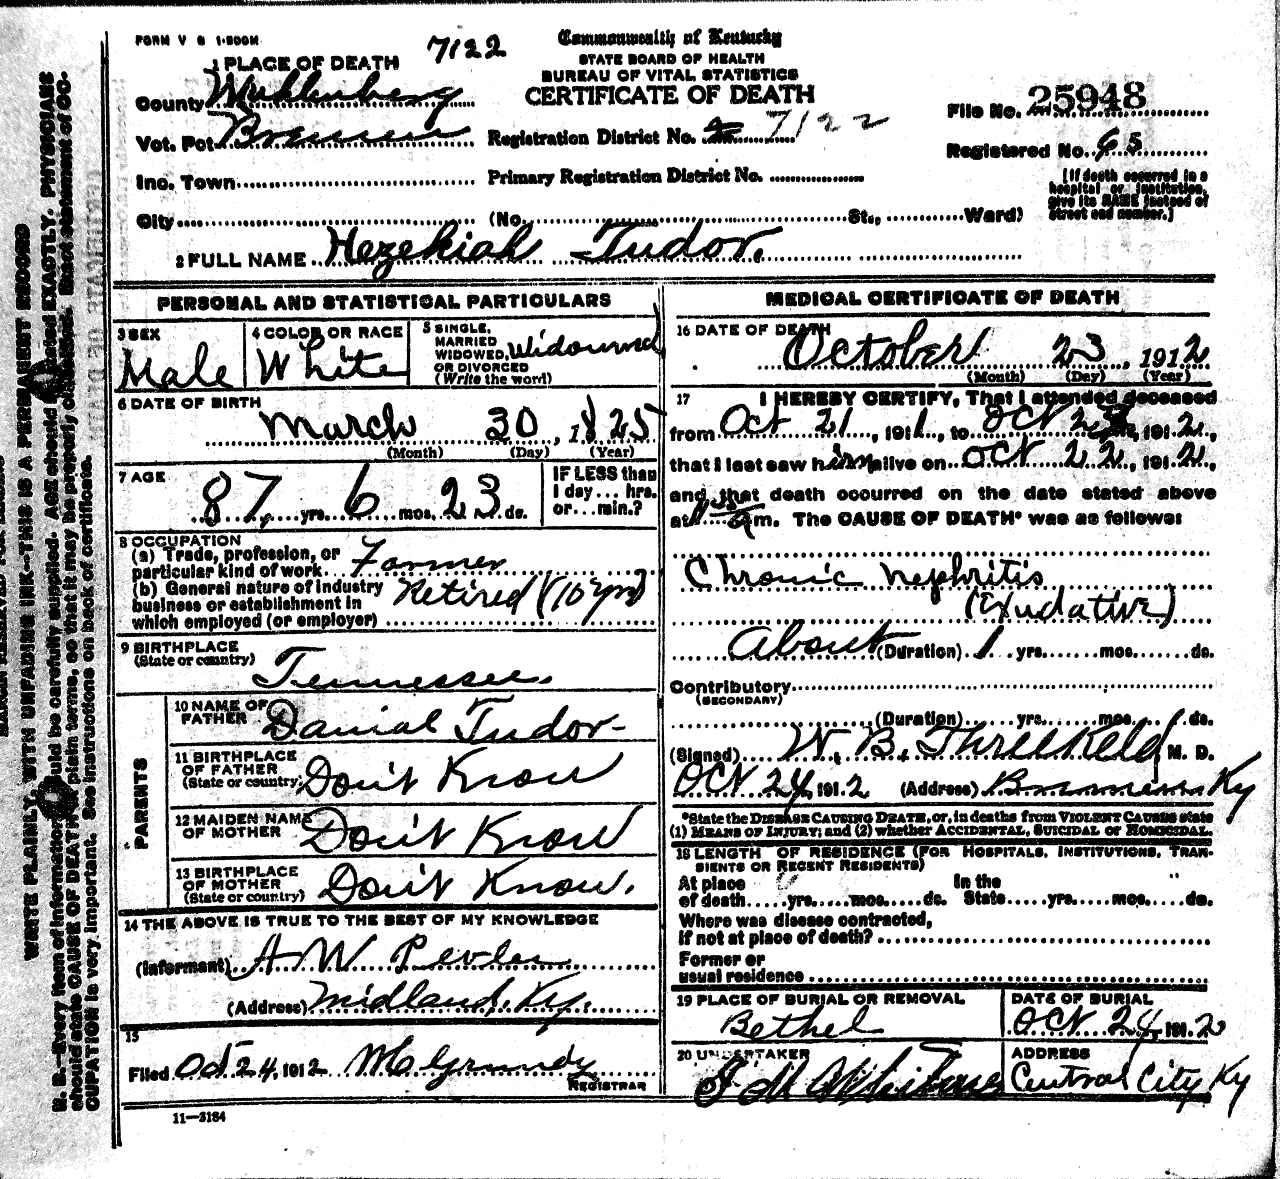 FORM V S 1-500M
7122
Commonwealth of Kentucky
STATE BOARD OF HEALTH
BUREAU OF VITAL STATISTICS
CERTIFICATE OF DEATH
1 PLACE OF DEATH
County Muhlenberg
Vot. Pct Bremen
Registration District No. 7122
File No. 25948
Registered No. 65
Inc. Town
Primary Registration District No.
[If death occurred in a
hospital or institution,
give its NAME instead of
street and number.]
City (No. St., Ward)
2 FULL NAME Hezekiah Tudor.
PERSONAL AND STATISTICAL PARTICULARS
3 SEX
Male
4 COLOR OR RACE
White
5 SINGLE,
MARRIED
WIDOWED, Widowed
OR DIVORCED
(Write the word)
6 DATE OF BIRTH
March 30, 1825
(Month) (Day) (Year)
7 AGE
87 yrs. 6 mos. 23 ds.
IF LESS than
1 day... hrs.
or...min.?
8 OCCUPATION
(a) Trade, profession, or
particular kind of work. Farmer
(b) General nature of industry
business or establishment in
which employed (or employer)
Retired (10 yrs)
9 BIRTHPLACE
(State or country)
Tennessee.
PARENTS
10 NAME OF
FATHER Danial Tudor
11 BIRTHPLACE
OF FATHER
(State or country) Don't Know
12 MAIDEN NAME
OF MOTHER Don't Know
13 BIRTHPLACE
OF MOTHER
(State or country) Don't Know.
14 THE ABOVE IS TRUE TO THE BEST OF MY KNOWLEDGE
(Informant) A W Pevler
(Address) Midland, Ky.
15
Filed Oct 24, 1912 M C Grundy
REGISTRAR
11—3184
MEDICAL CERTIFICATE OF DEATH
16 DATE OF DEATH
October 23, 1912
(Month) (Day) (Year)
17 I HEREBY CERTIFY, That I attended deceased
from Oct 21, 1911, to Oct 1912,
that I last saw him alive on Oct 22, 1912,
and that death occurred on the date stated above
at m. The CAUSE OF DEATH* was as follows:
Chronic Nephritis
(Exudative)
About (Duration) 1 yrs. mos. ds.
Contributory
(SECONDARY)
(Duration) yrs. mos. ds.
(Signed) W. B. Threlkeld M. D.
Oct 24, 1912 (Address) Bremen Ky
*State the DISEASE CAUSING DEATH, or, in deaths from VIOLENT CAUSES state
(1) MEANS OF INJURY; and (2) whether ACCIDENTAL, SUICIDAL or HOMICIDAL.
18 LENGTH OF RESIDENCE (FOR HOSPITALS, INSTITUTIONS, TRAN-
SIENTS OR RECENT RESIDENTS)
At place In the
of death.....yrs.....mos.....ds. State.....yrs.....mos.....ds.
Where was disease contracted,
If not at place of death?
Former or
usual residence
19 PLACE OF BURIAL OR REMOVAL
Bethel
DATE OF BURIAL
Oct 24, 1912
20 UNDERTAKER
ADDRESS
Central City Ky
WRITE PLAINLY, WITH UNFADING INK—THIS IS A PERMANENT RECORD
N. B.—Every item of information should be carefully supplied. AGE should be stated EXACTLY. PHYSICIANS
should state CAUSE OF DEATH in plain terms, so that it may be properly classified. Exact statement of OC-
CUPATION is very important. See instructions on back of certificate.